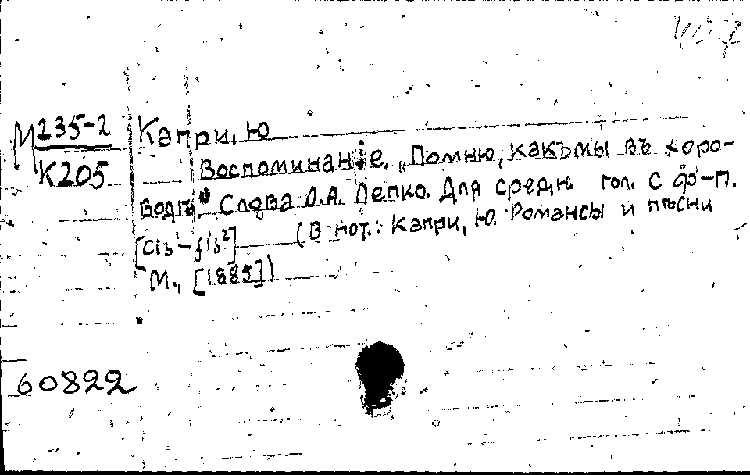 М 235-2
К205
Капри, Ю
Воспоминанiе. „Помню, какъ мы въ хоро-
водѣ" Слова О.А. Лепко. Для средн. гол. с ф-п.
[cis-fis²] (В нот.: Капри, Ю. Романсы и пѣсни
М., [1885])
60822